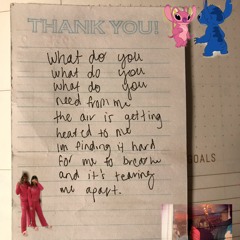 THANK YOU!
What do you
what do you
what do you
need from me
the air is getting
heated to me
im finding it hard
for me to breath
and it's tearing
me apart.
OALS